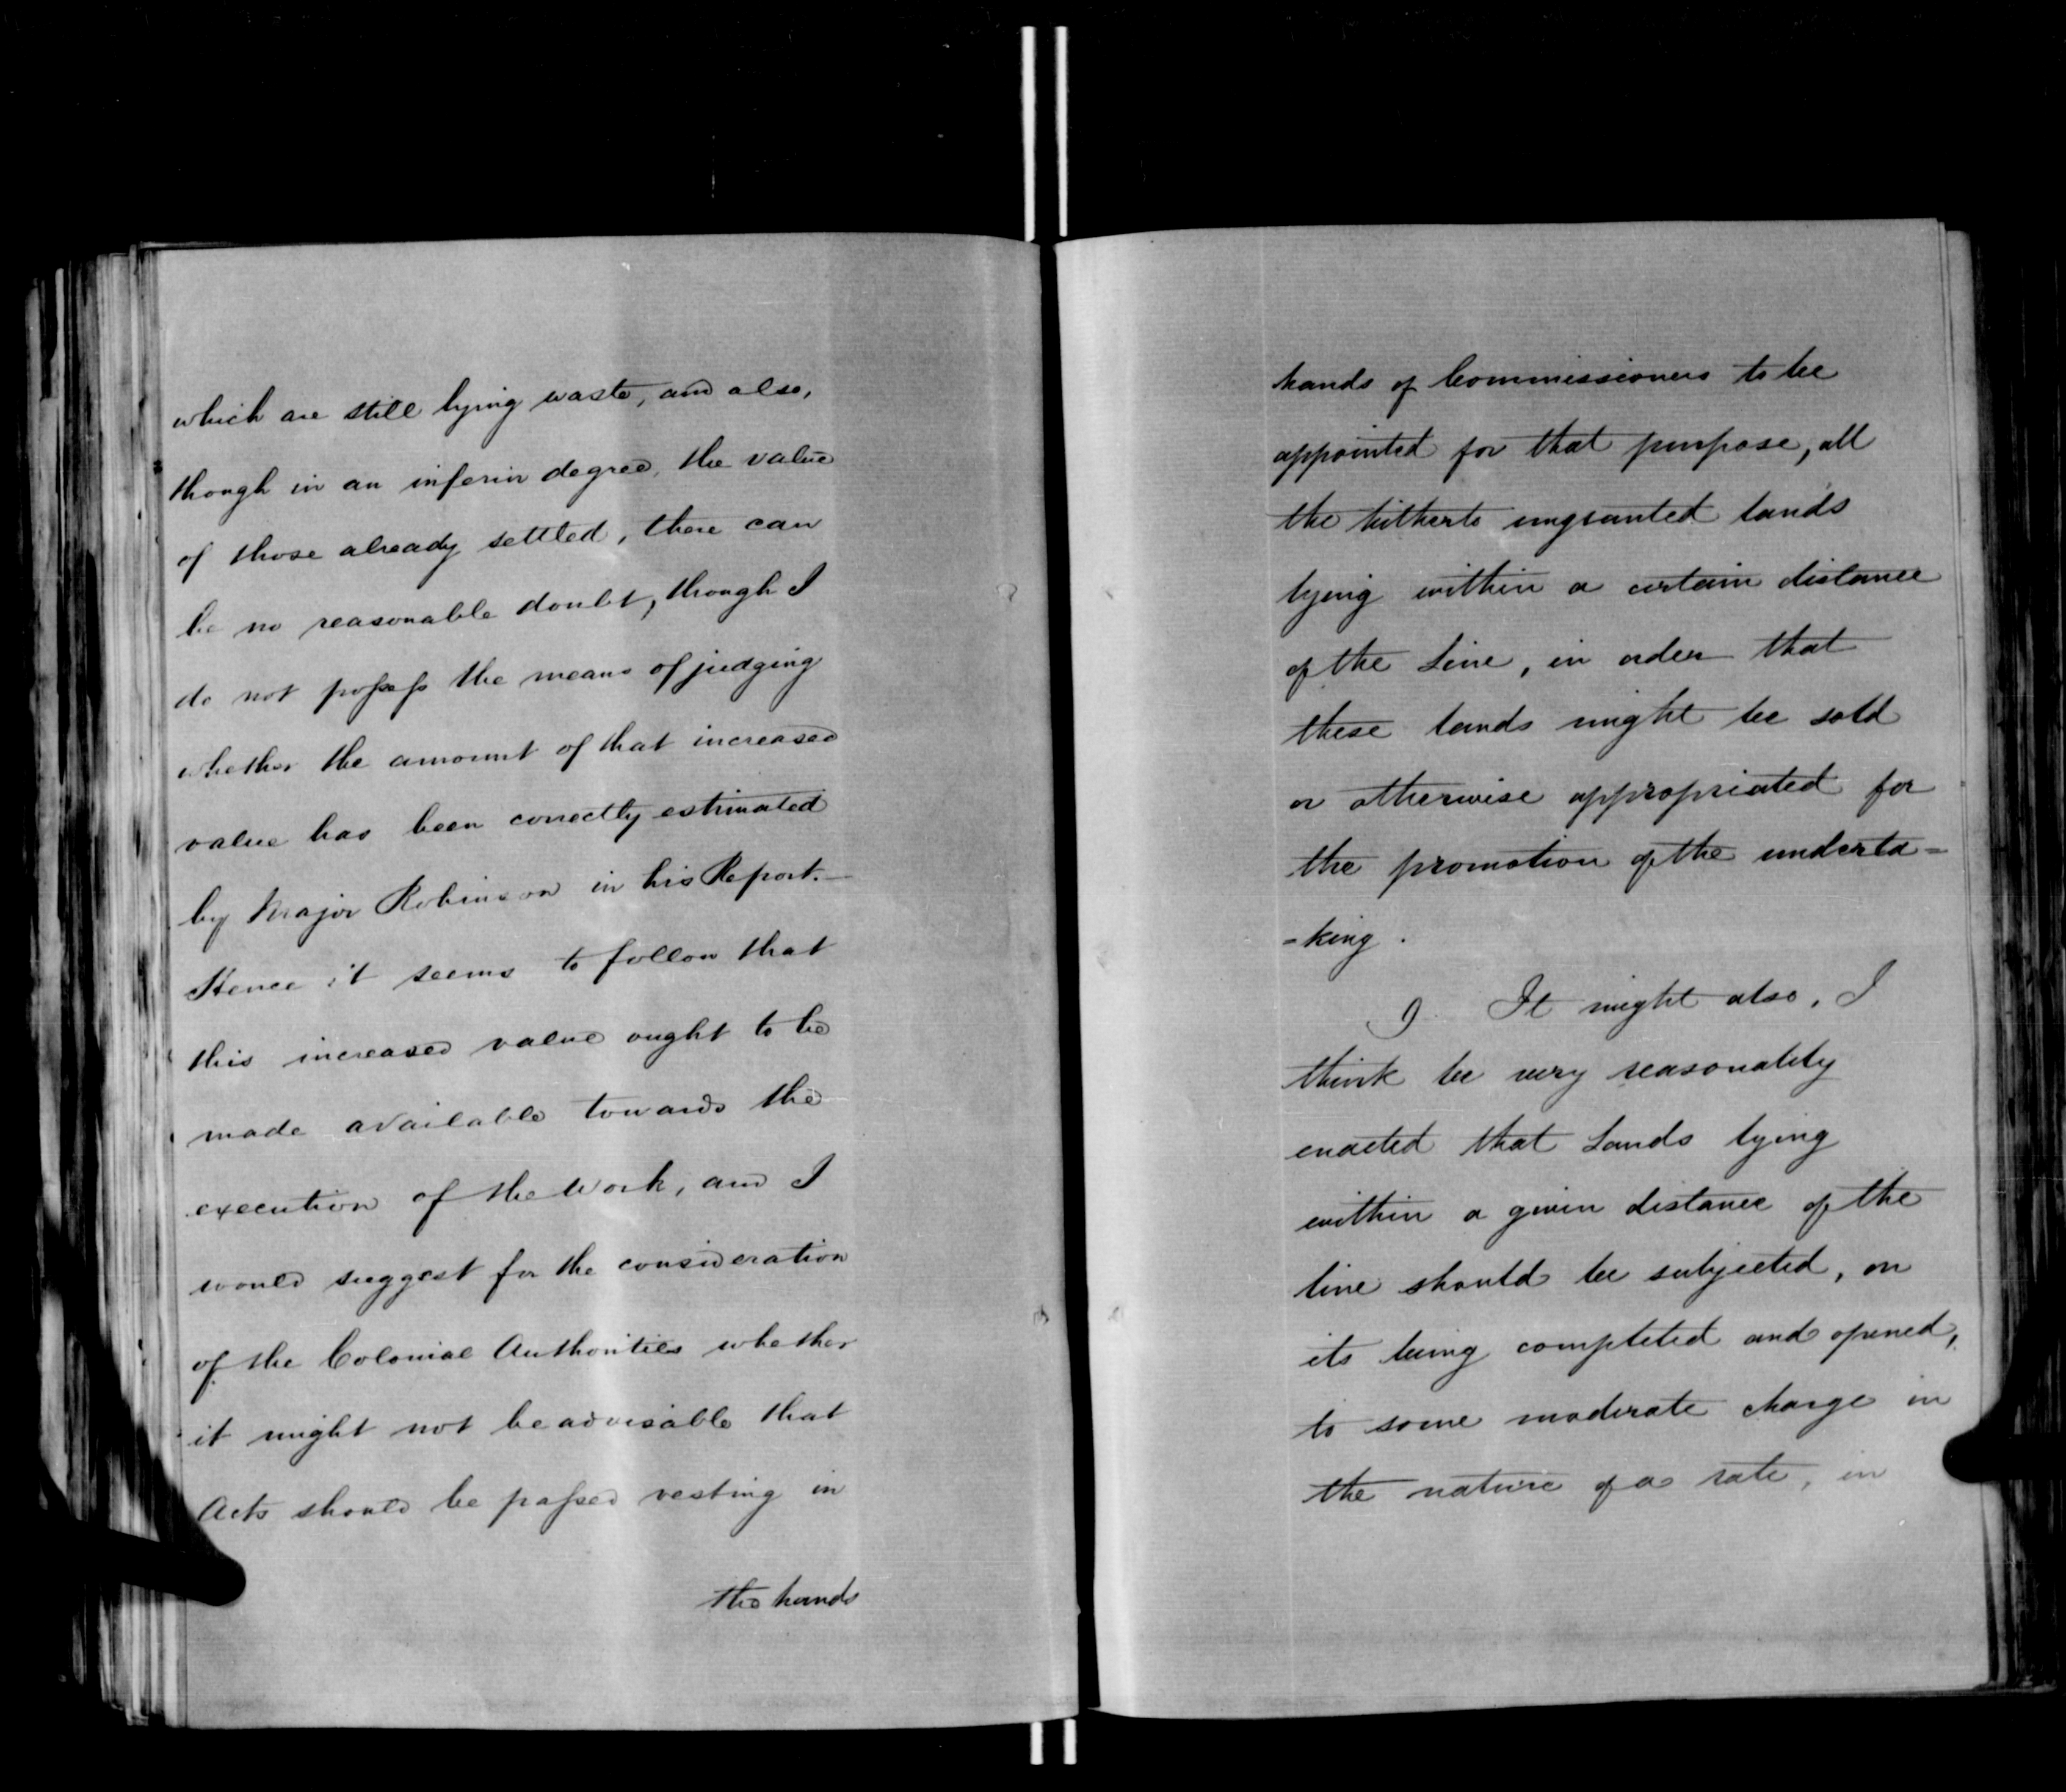 which are still lying waste, and also,
though in an inferior degree, the value
of those already settled, there can
be no reasonable doubt, though I
do not possess the means of judging
whether the amount of that increased
value has been correctly estimated
by Major Robinson in his Report.—
Hence it seems to follow that
this increased value ought to be
made available towards the
execution of the Work, and I
would suggest for the consideration
of the Colonial Authorities whether
it might not be advisable that
Acts should be passed vesting in
the hands
hands of Commissioners to be
appointed for that purpose, all
the hitherto ungranted lands
lying within a certain distance
of the Line, in order that
these lands might be sold
or otherwise appropriated for
the promotion of the underta=
=king.
9. It might also, I
think be very reasonably
enacted that Lands lying
within a given distance of the
line should be subjected, on
its being completed and opened,
to some moderate charge in
the nature of a rate, in